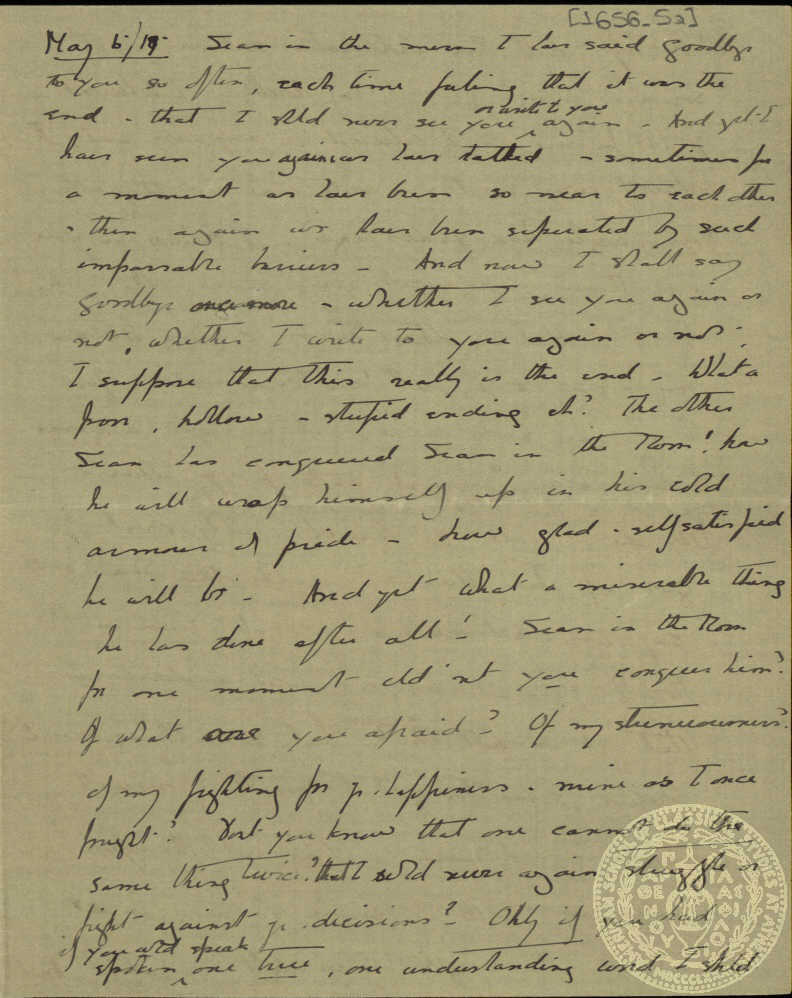 [1656-52]
May 6/19 Sean in the room I have said goodbye
to you so often, each time feeling that it was the
end - that I shld never see you again - And yet I
or write to you
have seen you again & we have talked - sometimes for
a moment we have been so near to each other
& then again we have been seperated by such
impassable barriers - And now I shall say
goodbye once more - whether I see you again or
not, whether I write to you again or not.
I suppose that this really is the end - What a
poor, hollow - stupid ending eh? The other
Sean has conquered Sean in the Room! how
he will wrap himself up in his cold
armour of pride - how glad & self satisfied
he will be - And yet what a miserable thing
he has done after all! Sean in the Room
for one moment cld'nt you conquer him?
Of what are you afraid? Of my
of my fighting for yr. happiness & mine as I once
fought? Dont you know that one cannot do the
same thing twice? that I shld never again struggle or
fight against yr. decisions? Only if you had
if you wld speak
spoken one true, one understanding word I shld